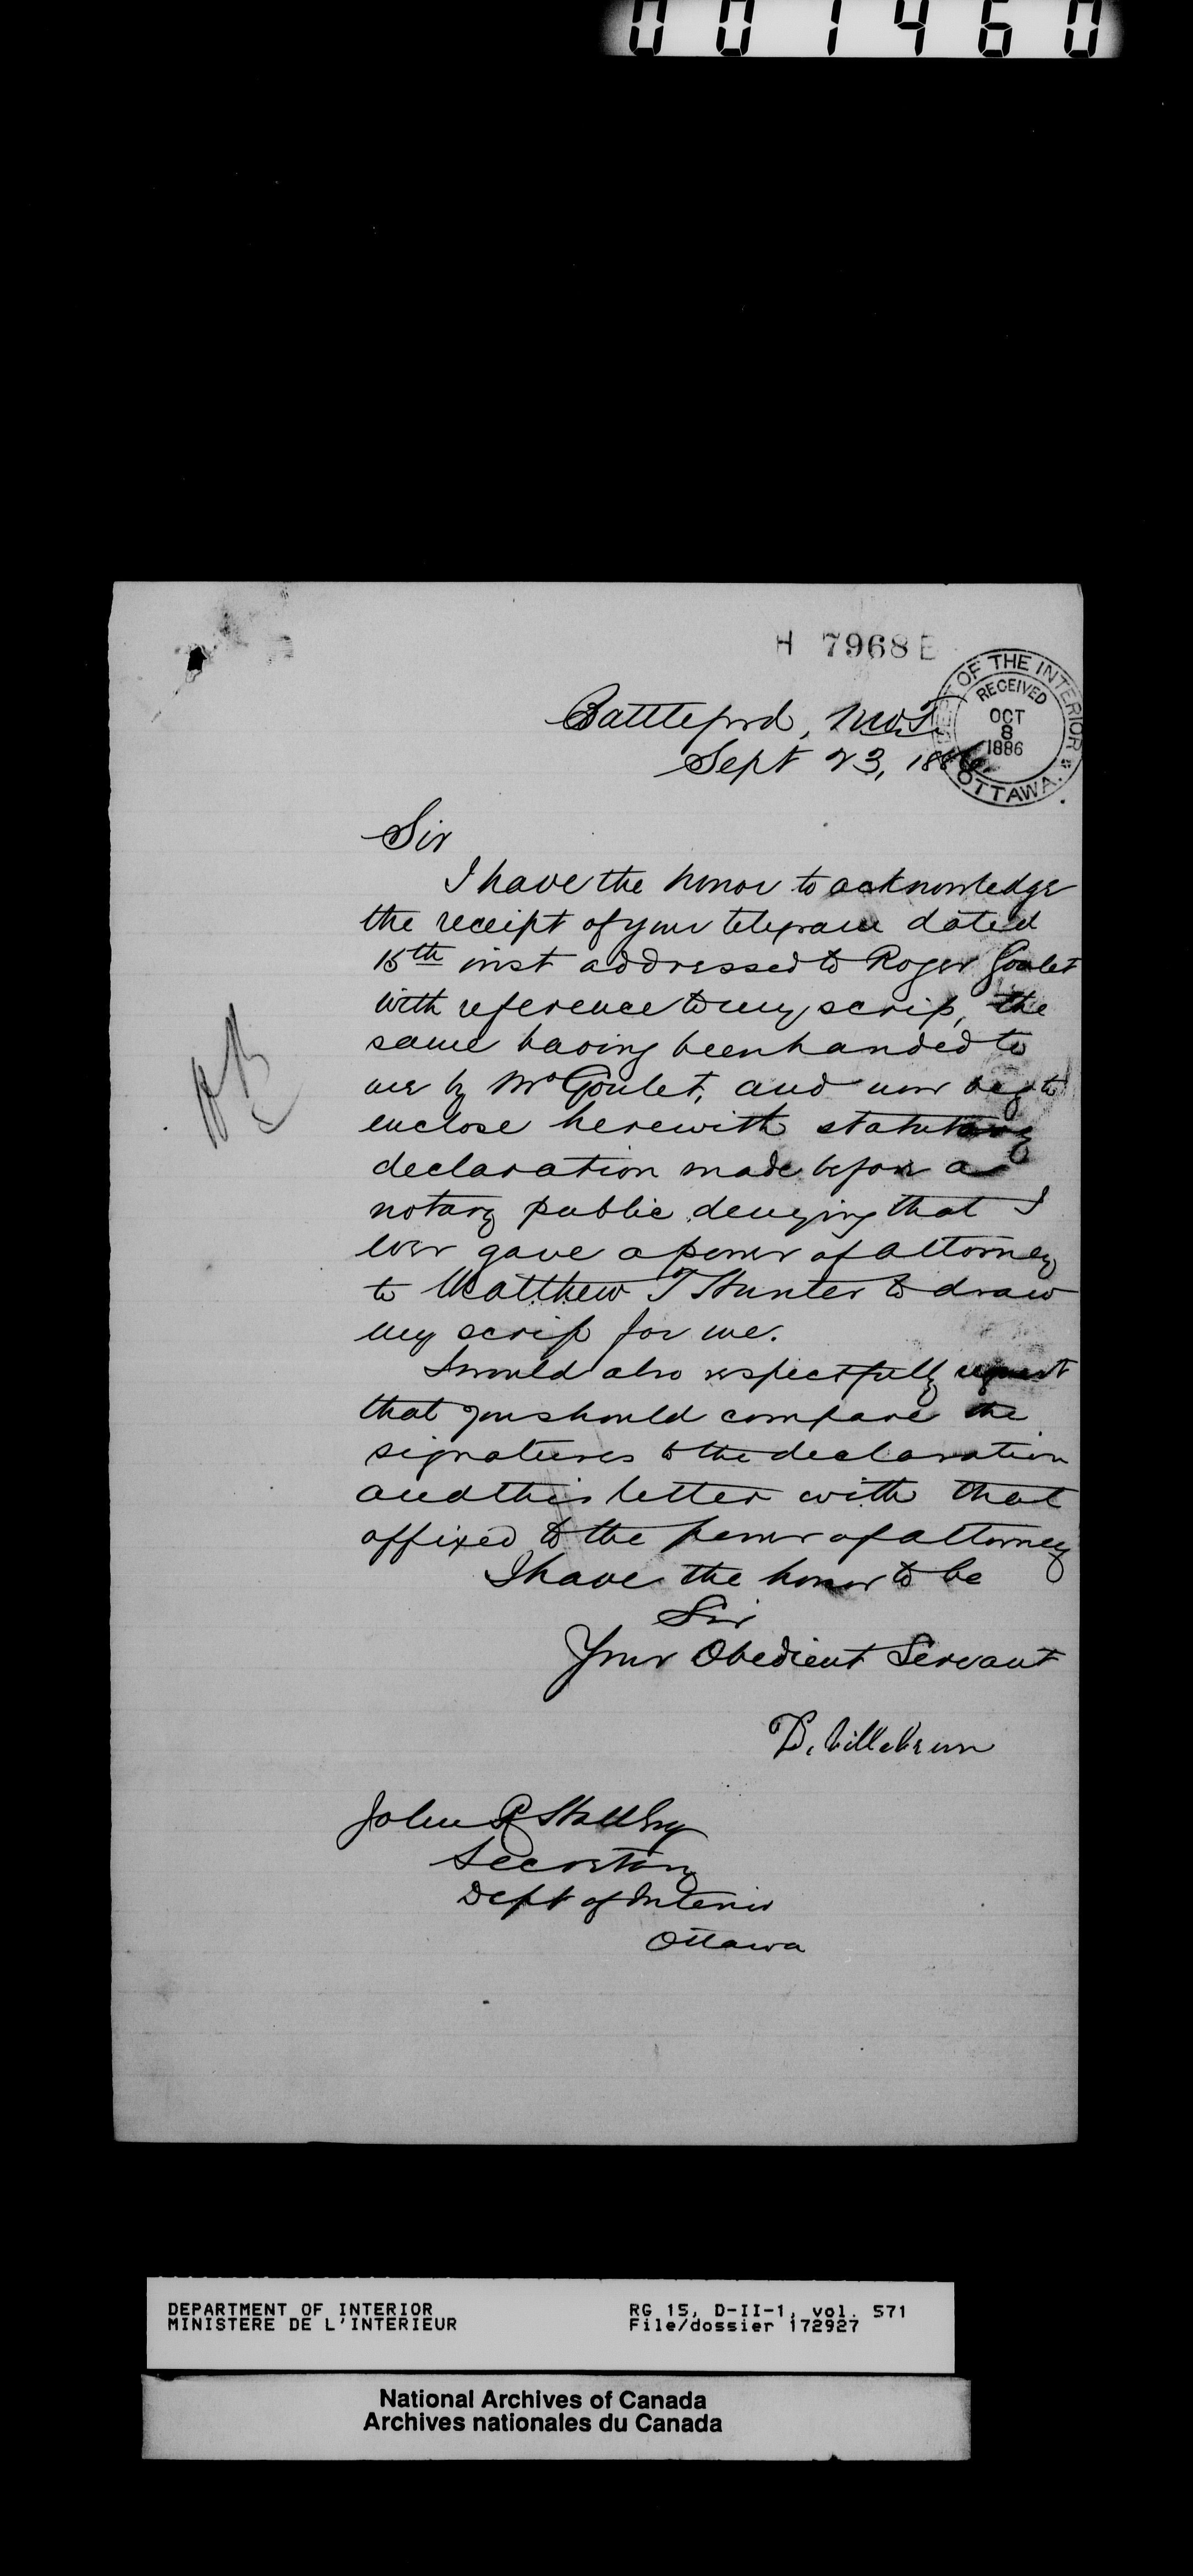 001460
H 7968 E
DEPT OF THE INTERIOR
RECEIVED
OCT
8
1886
OTTAWA.
Battleford, N.W.T.
Sept 23, 1886.
Sir
I have the honor to acknowledge
the receipt of your telegram dated
15th inst addressed to Roger Goulet
with reference to my scrip, the
same having been handed to
me by Mr Goulet, and now beg to
enclose herewith statutory
declaration made before a
notary public denying that I
ever gave a power of attorney
to Matthew T Hunter to draw
my scrip for me.
I would also respectfully request
that you should compare the
signatures to the declaration
and this letter with that
affixed to the power of attorney
I have the honor to be
Sir
Your Obedient Servant
D. Villebrun
John R Hall Esq
Secretary
Dept of Interior
Ottawa
DEPARTMENT OF INTERIOR
MINISTERE DE L'INTERIEUR
RG 15, D-II-1, vol. 571
File/dossier 172927
National Archives of Canada
Archives nationales du Canada